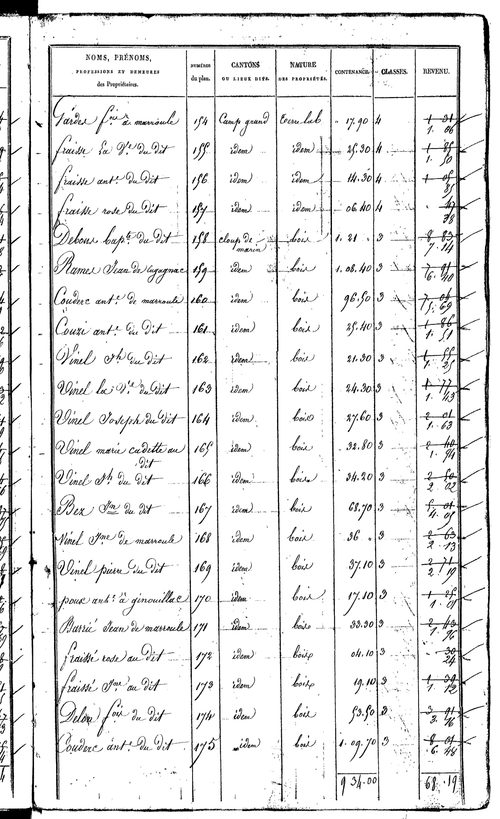 NOMS, PRÉNOMS, PROFESSIONS ET DEMEURES des Propriétaires. NUMÉROS du plan. CANTONS OU LIEUX DITS. NATURE DES PROPRIÉTÉS. CONTENANCE. CLASSES. REVENU.
Gardes fois à marroule 154 Camp grand Terre lab 17.90 4 1 31
1. 06
fraisse la Ve du dit 155 idem idem 25.30 4 1 85
1. 50
fraisse ant. du dit 156 idem idem 14.30 4 1 05
85
fraisse rose du dit 157 idem idem 06.40 4 47
38
Debons bapte du dit 158 cloup de marin bois 1. 21 3 8 83
7. 14
Rames Jean de 159 idem bois 1. 08. 40 3 7 91
6. 40
Couderc ant. de marroule 160 idem bois 96.50 3 7 04
5. 69
Couzi ant. du dit 161 idem bois 25.40 3 1 86
1. 51
Vinel du dit 162 idem bois 21.30 3 1 55
1. 25
Vinel la Ve du dit 163 idem bois 24.30 3 1 77
1. 43
Vinel Joseph du dit 164 idem bois 27.60 3 2 01
1. 63
Vinel marie cadette au dit 165 idem bois 32.80 3 2 40
1. 94
Vinel du dit 166 idem bois 34.20 3 2 50
2 02
Bex Jne du dit 167 idem bois 68.70 3 5 01
4. 05
Vinel Jme de marroule 168 idem bois 36 3 2 63
2 13
Vinel pierre du dit 169 idem bois 37.10 3 2 71
2 19
poux ant. à ginouillac 170 idem bois 17.10 3 1 25
1. 01
Barrié Jean de marroule 171 idem bois 33.30 3 2 43
1. 96
fraisse rose au dit 172 idem bois 04.10 3 30
24
fraisse Jme au dit 173 idem bois 19.10 3 1 39
1. 12
Delon fois du dit 174 idem bois 53.50 3 3 91
3. 16
Couderc ant. du dit 175 idem bois 1. 09.70 3 8 01
6. 48
9 34.00 68.19